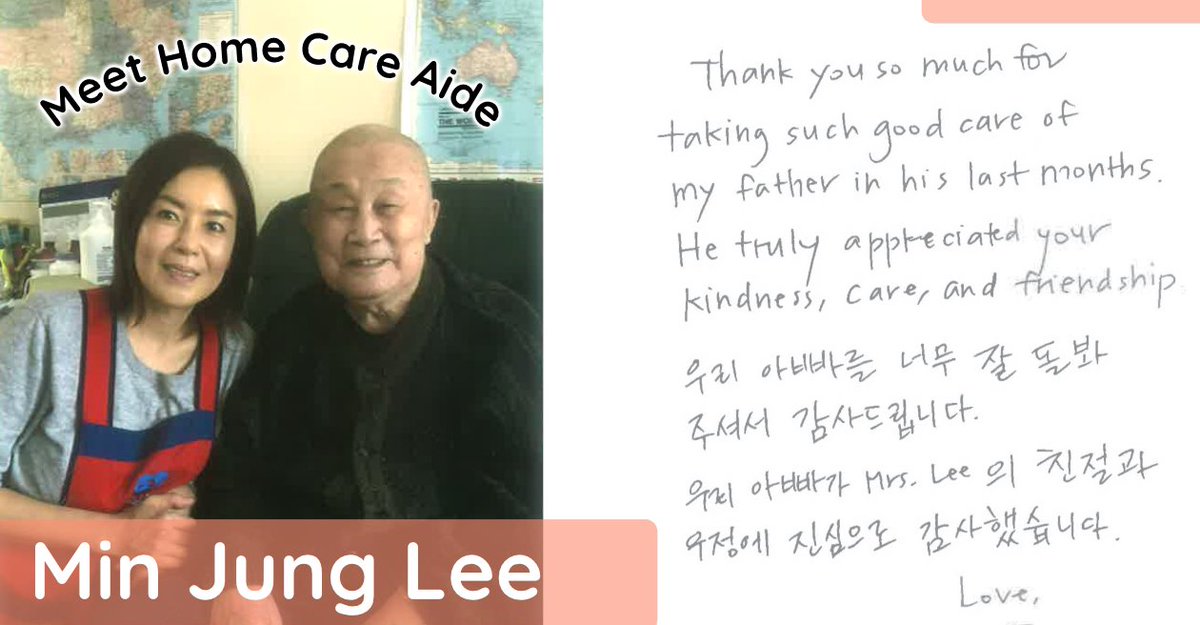 Meet Home Care Aide
Min Jung Lee
Thank you so much for
taking such good care of
my father in his last months.
He truly appreciated your
kindness, care, and friendship
우리 아빠를 너무 잘 돌봐
주셔서 감사드립니다.
아빠가 Mrs. Lee 의 친절과
우정에 진심으로 감사했습니다.
Love,